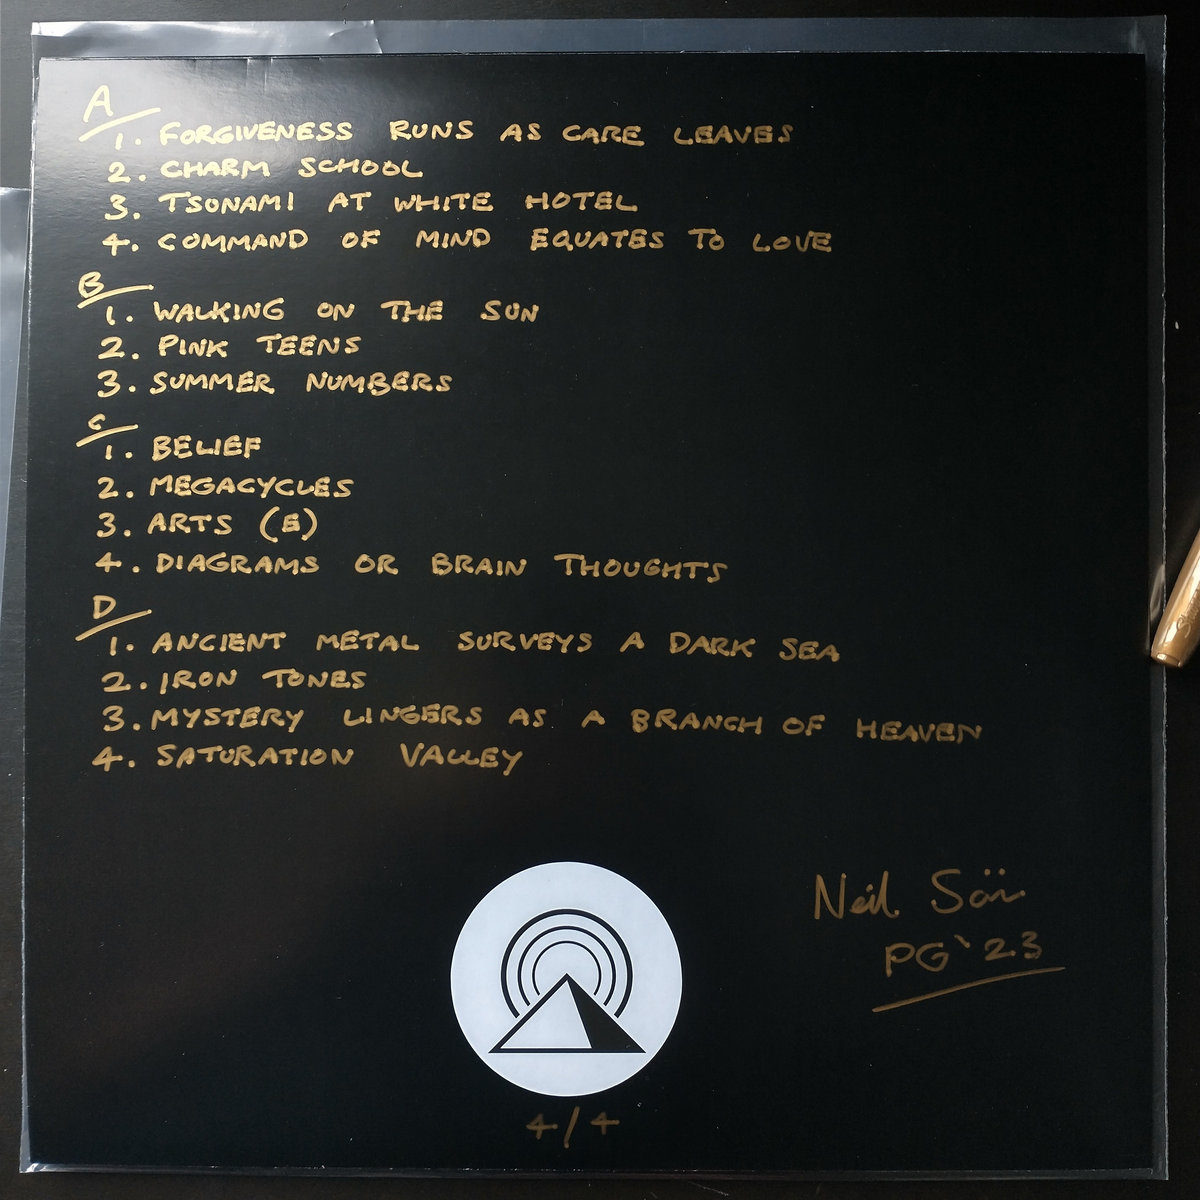 A
1. FORGIVENESS RUNS AS CARE LEAVES
2. CHARM SCHOOL
3. TSUNAMI AT WHITE HOTEL
4. COMMAND OF MIND EQUATES TO LOVE
B
1. WALKING ON THE SUN
2. PINK TEENS
3. SUMMER NUMBERS
C
1. BELIEF
2. MEGACYCLES
3. ARTS (E)
4. DIAGRAMS OR BRAIN THOUGHTS
D
1. ANCIENT METAL SURVEYS A DARK SEA
2. IRON TONES
3. MYSTERY LINGERS AS A BRANCH OF HEAVEN
4. SATURATION VALLEY
Neil
PG '23
4/4